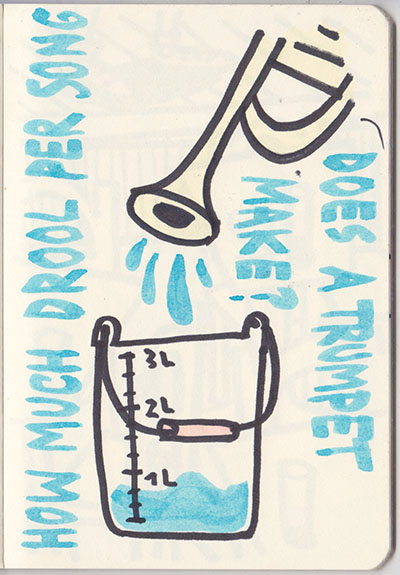 HOW MUCH DROOL PER SONG
DOES A TRUMPET
MAKE?
3L
2L
1L